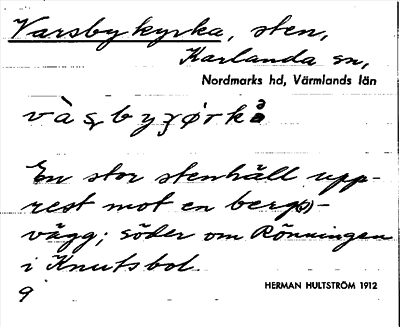 Varsby kyrka, sten,
Karlanda sn,
Nordmarks hd, Värmlands län
En stor stenhäll upp-
rest mot en berg(s)-
vägg; söder om Rönningen
i Knutsbol.
HERMAN HULTSTRÖM 1912
9